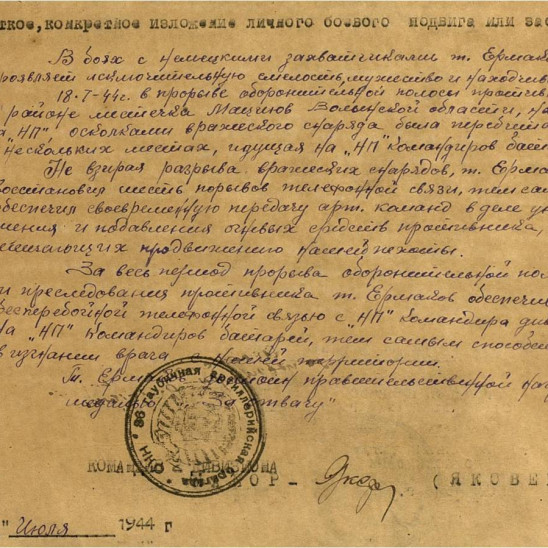 ткое, конкретное изложение личного боевого подвига или зас
В боях с немецкими захватчиками т. Ермак
роявлят исключительную смелость, мужество и находчив
18.7-44г. в прорыве оборонительной полосы против
районе местечка Мациюв Волынской области, на
А "НП" осколками вражеского снаряда была перебита
нескольких местах, идущая на "НП" командиров бат
Не взирая разрыва вражеских снарядов, т. Ерма
восстановил шесть порывов телефонной связи, тем сам
обеспечил своевременную передачу арт. команд в деле ун
жения и подавления огневых средств противника,
ешающих продвижению нашей пехоты.
За весь период прорыва оборонительной пол
и преследования противника т. Ермаков обеспечи
бесперебойной телефонной связью с "НП" командира ди
на "НП" командиров батарей, тем самым способс
изгнании врага с нашей территории.
Т. Ерм правительственной наг
медал отвагу"
86 гаубичная артиллерийская бригада
КОМАН ДИВИЗИОНА
ОР - (ЯКОВЕ
" Июля 1944 г